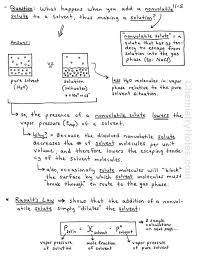 11-5
Question: What happens when you add a nonvolatile
solute to a solvent, thus making a solution?
Answer:
nonvolatile solute =
a solute that has no ten-
dency to escape from
solution into the gas
phase
pure
solvent
(H₂O)
solution
(w/solute)
less H₂O molecules in vapor
phase relative to the pure
solvent situation.
So, the presence of a nonvolatile solute lowers the
vapor pressure of a solvent.
Why? = Because the dissolved nonvolatile solute
decreases the # of solvent molecules per unit
volume, and therefore lowers the escaping tenden-
cy of the solvent molecules.
also, occasionally solute molecules will "block"
the surface which solvent molecules must
break through en route to the gas phase.
Raoult's Law = shows that the addition of a nonvo-
latile solute simply "dilutes" the solvent.
Psoln = Xsolvent · P°solvent
vapor pressure
of solution
mole fraction
of solvent
vapor pressure
of solvent
2 sample
calculations